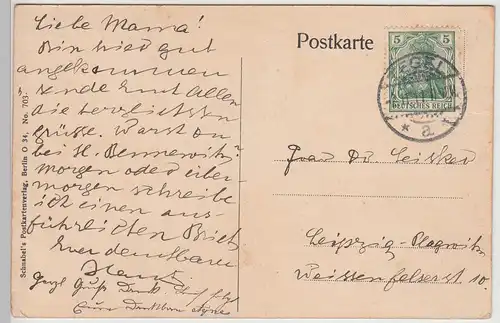 Liebe Mama!
Bin hier gut
angekommen
sende Euch Allen
die herzlichsten
Grüsse. Warst Du
bei H. Bennewitz?
morgen oder über-
morgen schreibe
ich einen aus-
führlichen Brief
Euer dankbarer
Hans.
Gruß Dank
Eure dankbare
Schnabel's Postkartenverlag, Berlin O 34, No. 703.
Postkarte
5 5
DEUTSCHES REICH
TEGEL
* a
Frau Dr
Leipzig-Plagwitz
Weissenfelserst 10.